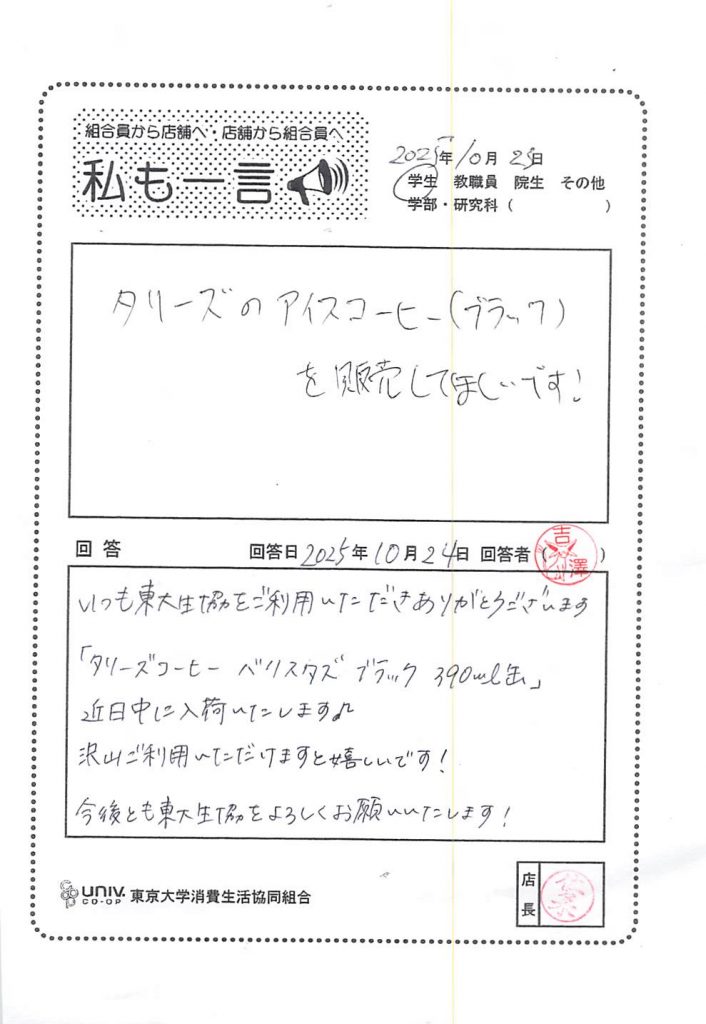 組合員から店舗へ・店舗から組合員へ
私も一言
2025年10月23日
学生 教職員 院生 その他
学部・研究科( )
タリーズのアイスコーヒー(ブラック)
を販売してほしいです!
回答 回答日 2025年10月24日 回答者(吉澤)
いつも東大生協をご利用いただきありがとうございます
「タリーズコーヒー バリスタズ ブラック 390ml缶」
近日中に入荷いたします♪
沢山ご利用いただけますと嬉しいです!
今後とも東大生協をよろしくお願いいたします!
coop UNIV. CO-OP 東京大学消費生活協同組合
店長